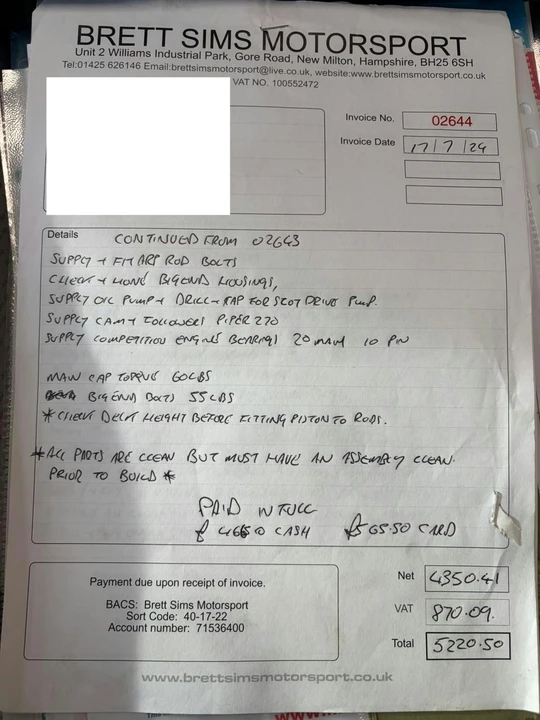 BRETT SIMS MOTORSPORT
Unit 2 Williams Industrial Park, Gore Road, New Milton, Hampshire, BH25 6SH
Tel:01425 626146 Email:brettsimsmotorsport@live.co.uk, website:www.brettsimsmotorsport.co.uk
VAT NO. 100552472
Invoice No. 02644
Invoice Date 17/7/24
Details CONTINUED FROM 02643
SUPPLY + FIT ARP ROD BOLTS
CHECK + HONE BIGEND HOUSINGS,
SUPPLY OIL PUMP + DRILL + TAP FOR SLOT DRIVE PUMP.
SUPPLY CAM + FOLLOWERS PIPER 270
SUPPLY COMPETITION ENGINE BEARINGS 20 MAIN 10 PIN
MAIN CAP TORQUE 60LBS
BIGEND BOLTS 55LBS
* CHECK DECK HEIGHT BEFORE FITTING PISTON TO RODS.
*ALL PARTS ARE CLEAN BUT MUST HAVE AN ASSEMBLY CLEAN.
PRIOR TO BUILD *
PAID IN FULL
£ CASH £565.50 CARD
Payment due upon receipt of invoice.
BACS: Brett Sims Motorsport
Sort Code: 40-17-22
Account number: 71536400
Net 4350.41
VAT 870.09.
Total 5220.50
www.brettsimsmotorsport.co.uk